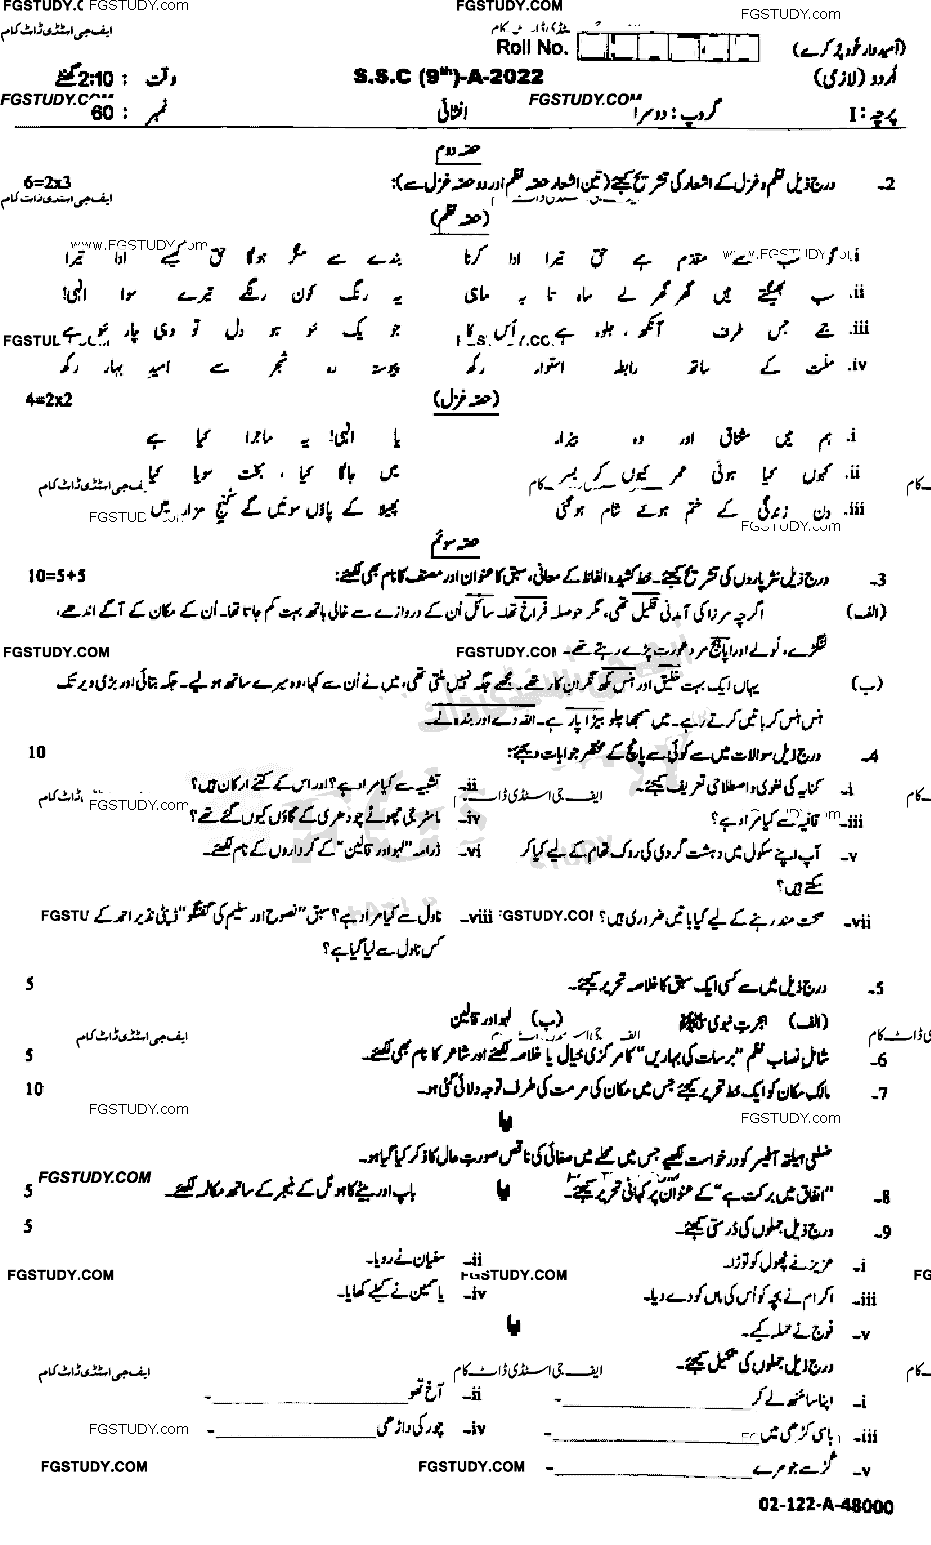 FGSTUDY.C FGSTUDY.com FGSTUDY.COM FGSTUDY.com
ایف جی اسٹڈی ڈاٹ کام
Roll No. (امیدوار خود پُر کرے)
اُردو (لازمی) S.S.C (9th)-A-2022 وقت : 2:10 گھنٹے
پرچہ : I گروپ : دوسرا FGSTUDY.COM انشائی نمبر : 60 FGSTUDY.COM
حصہ دوم
2۔ درج ذیل نظم و غزل کے اشعار کی تشریح کیجئے (تین اشعار حصہ نظم اور دو حصہ غزل سے): 6=2x3
ایف جی اسٹڈی ڈاٹ کام
(حصہ نظم)
i. سب سے مقدم ہے حق تیرا ادا کرنا بندے سے مگر ہوگا حق کیسے ادا تیرا
ii. سب بھیگتے ہیں گھر گھر لے ماہ تا بہ ماہی یہ رنگ کون رنگے تیرے سوا الٰہی!
iii. جس طرف آنکھ ، جلوہ ہے اُس کا جو یک سو ہو دل تو وہی چار سو ہے
iv. ملت کے ساتھ رابطہ استوار رکھ پیوستہ رہ شجر سے امید بہار رکھ
(حصہ غزل) 4=2x2
i. ہم ہیں مشتاق اور وہ بیزار یا الٰہی! یہ ماجرا کیا ہے
ii. کہوں کیا ہوئی عمر کیوں کر بسر میں جاگا کیا ، بخت سویا کیا
iii. دن زندگی کے ختم ہوئے شام ہوگئی پھیلا کے پاؤں سوئیں گے کنج مزار میں
حصہ سوئم
3۔ درج ذیل نثر پاروں کی تشریح کیجئے۔ خط کشیدہ الفاظ کے معانی، سبق کا عنوان اور مصنف کا نام بھی لکھئے: 10=5+5
(الف) اگرچہ مرزا کی آمدنی قلیل تھی، مگر حوصلہ فراخ تھا۔ سائل اُن کے دروازے سے خالی ہاتھ بہت کم جاتا تھا۔ اُن کے مکان کے آگے اندھے،
لنگڑے، لولے اور اپاہج مرد و عورت پڑے رہتے تھے۔ FGSTUDY.COM FGSTUDY.COM
(ب) یہاں ایک بہت خلیق اور ہنس مکھ نگران کار تھے۔ مجھے جگہ نہیں ملتی تھی، میں نے اُن سے کہا، وہ میرے ساتھ ہو لیے۔ جگہ بتائی اور بڑی دیر تک
ہنس ہنس کر باتیں کرتے رہے۔ میں سمجھا چلو بیڑا پار ہے۔ اللہ دے اور بندہ لے۔
4۔ درج ذیل سوالات میں سے کوئی سے پانچ کے مختصر جوابات دیجئے: 10
i۔ کنایہ کی لغوی و اصطلاحی تعریف کیجئے۔ ii۔ تشبیہ سے کیا مراد ہے؟ اور اس کے کتنے ارکان ہیں؟
iii۔ قافیہ سے کیا مراد ہے؟ iv۔ ماسٹر جی چھوٹے چودھری کے گاؤں کیوں گئے تھے؟
v۔ آپ اپنے سکول میں دہشت گردی کی روک تھام کے لیے کیا کر vi۔ ڈرامہ "لہو اور قالین" کے کرداروں کے نام لکھئے۔
سکتے ہیں؟
vii۔ صحت مند رہنے کے لیے کیا باتیں ضروری ہیں؟ viii۔ ناول سے کیا مراد ہے؟ سبق "نصوح اور سلیم کی گفتگو" ڈپٹی نذیر احمد کے
کس ناول سے لیا گیا ہے؟
5۔ درج ذیل میں سے کسی ایک سبق کا خلاصہ تحریر کیجئے۔ 5
(الف) ہجرت نبوی ﷺ (ب) لہو اور قالین
6۔ شامل نصاب نظم "برسات کی بہاریں" کا مرکزی خیال یا خلاصہ لکھئے اور شاعر کا نام بھی لکھئے۔ 5
7۔ مالک مکان کو ایک خط تحریر کیجئے جس میں مکان کی مرمت کی طرف توجہ دلائی گئی ہو۔ 10
FGSTUDY.com یا FGSTUDY.com
ضلعی ہیلتھ آفیسر کو درخواست لکھیے جس میں محلے میں صفائی کی ناقص صورت حال کا ذکر کیا گیا ہو۔
FGSTUDY.COM
8۔ "اتفاق میں برکت ہے" کے عنوان پر کہانی تحریر کیجئے۔ یا باپ اور بیٹے کا ہوٹل کے منیجر کے ساتھ مکالمہ لکھئے۔ 5
9۔ درج ذیل جملوں کی درستی کیجئے۔ 5
i۔ عزیز نے پھول کو توڑا۔ ii۔ سفیان نے رویا۔
FGSTUDY.COM FGSTUDY.COM FG
iii۔ اکرام نے بچہ کو اُس کی ماں کو دے دیا۔ iv۔ یاسمین نے کیلے کھایا۔
v۔ فوج نے حملہ کیے۔ یا
درج ذیل جملوں کی تکمیل کیجئے۔
ایف جی اسٹڈی ڈاٹ کام ایف جی اسٹڈی ڈاٹ کام
i۔ اپنا سا منھ لے کر ________ ۔ ii۔ آخ تھو ________ ۔
iii۔ باسی کڑھی میں ________ ۔ iv۔ چور کی داڑھی ________ ۔ FGSTUDY.com
v۔ گڑ سے جو مرے ________ ۔ FGSTUDY.COM FGSTUDY.COM
02-122-A-48000